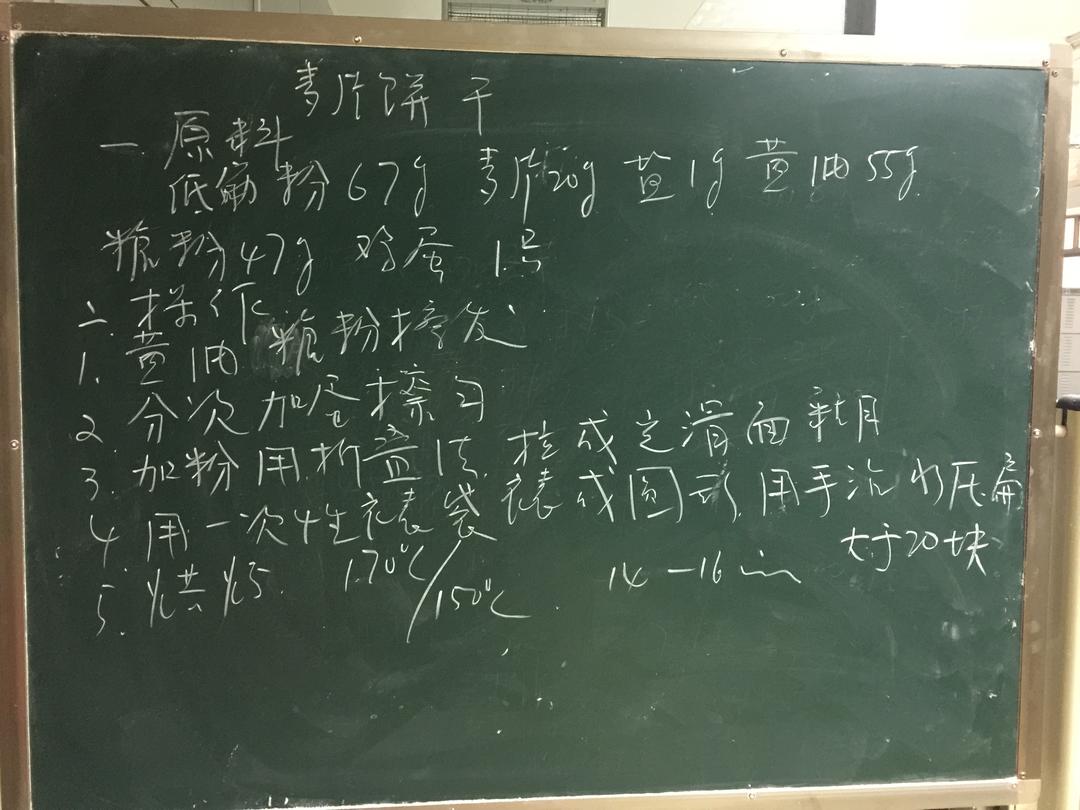 麦片饼干
一 原料
低筋粉67g 麦片20g 盐1g 黄油55g
糖粉47g 鸡蛋 1号
二. 操作
1. 黄油 糖粉擦发
2 分次加蛋擦匀
3. 加粉用折叠法. 拌成光滑面糊
4. 用一次性裱袋 裱成圆形 用手沾水压扁
大于20块
5. 烘烤. 170℃/150℃. 14-16min